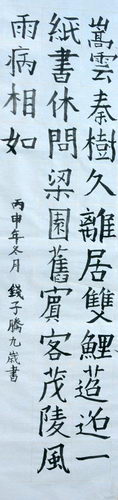 嵩雲秦樹久離居雙鯉迢迢一
紙書休問梁園舊賓客茂陵風
雨病相如
丙申年冬月 錢子騰九歲書